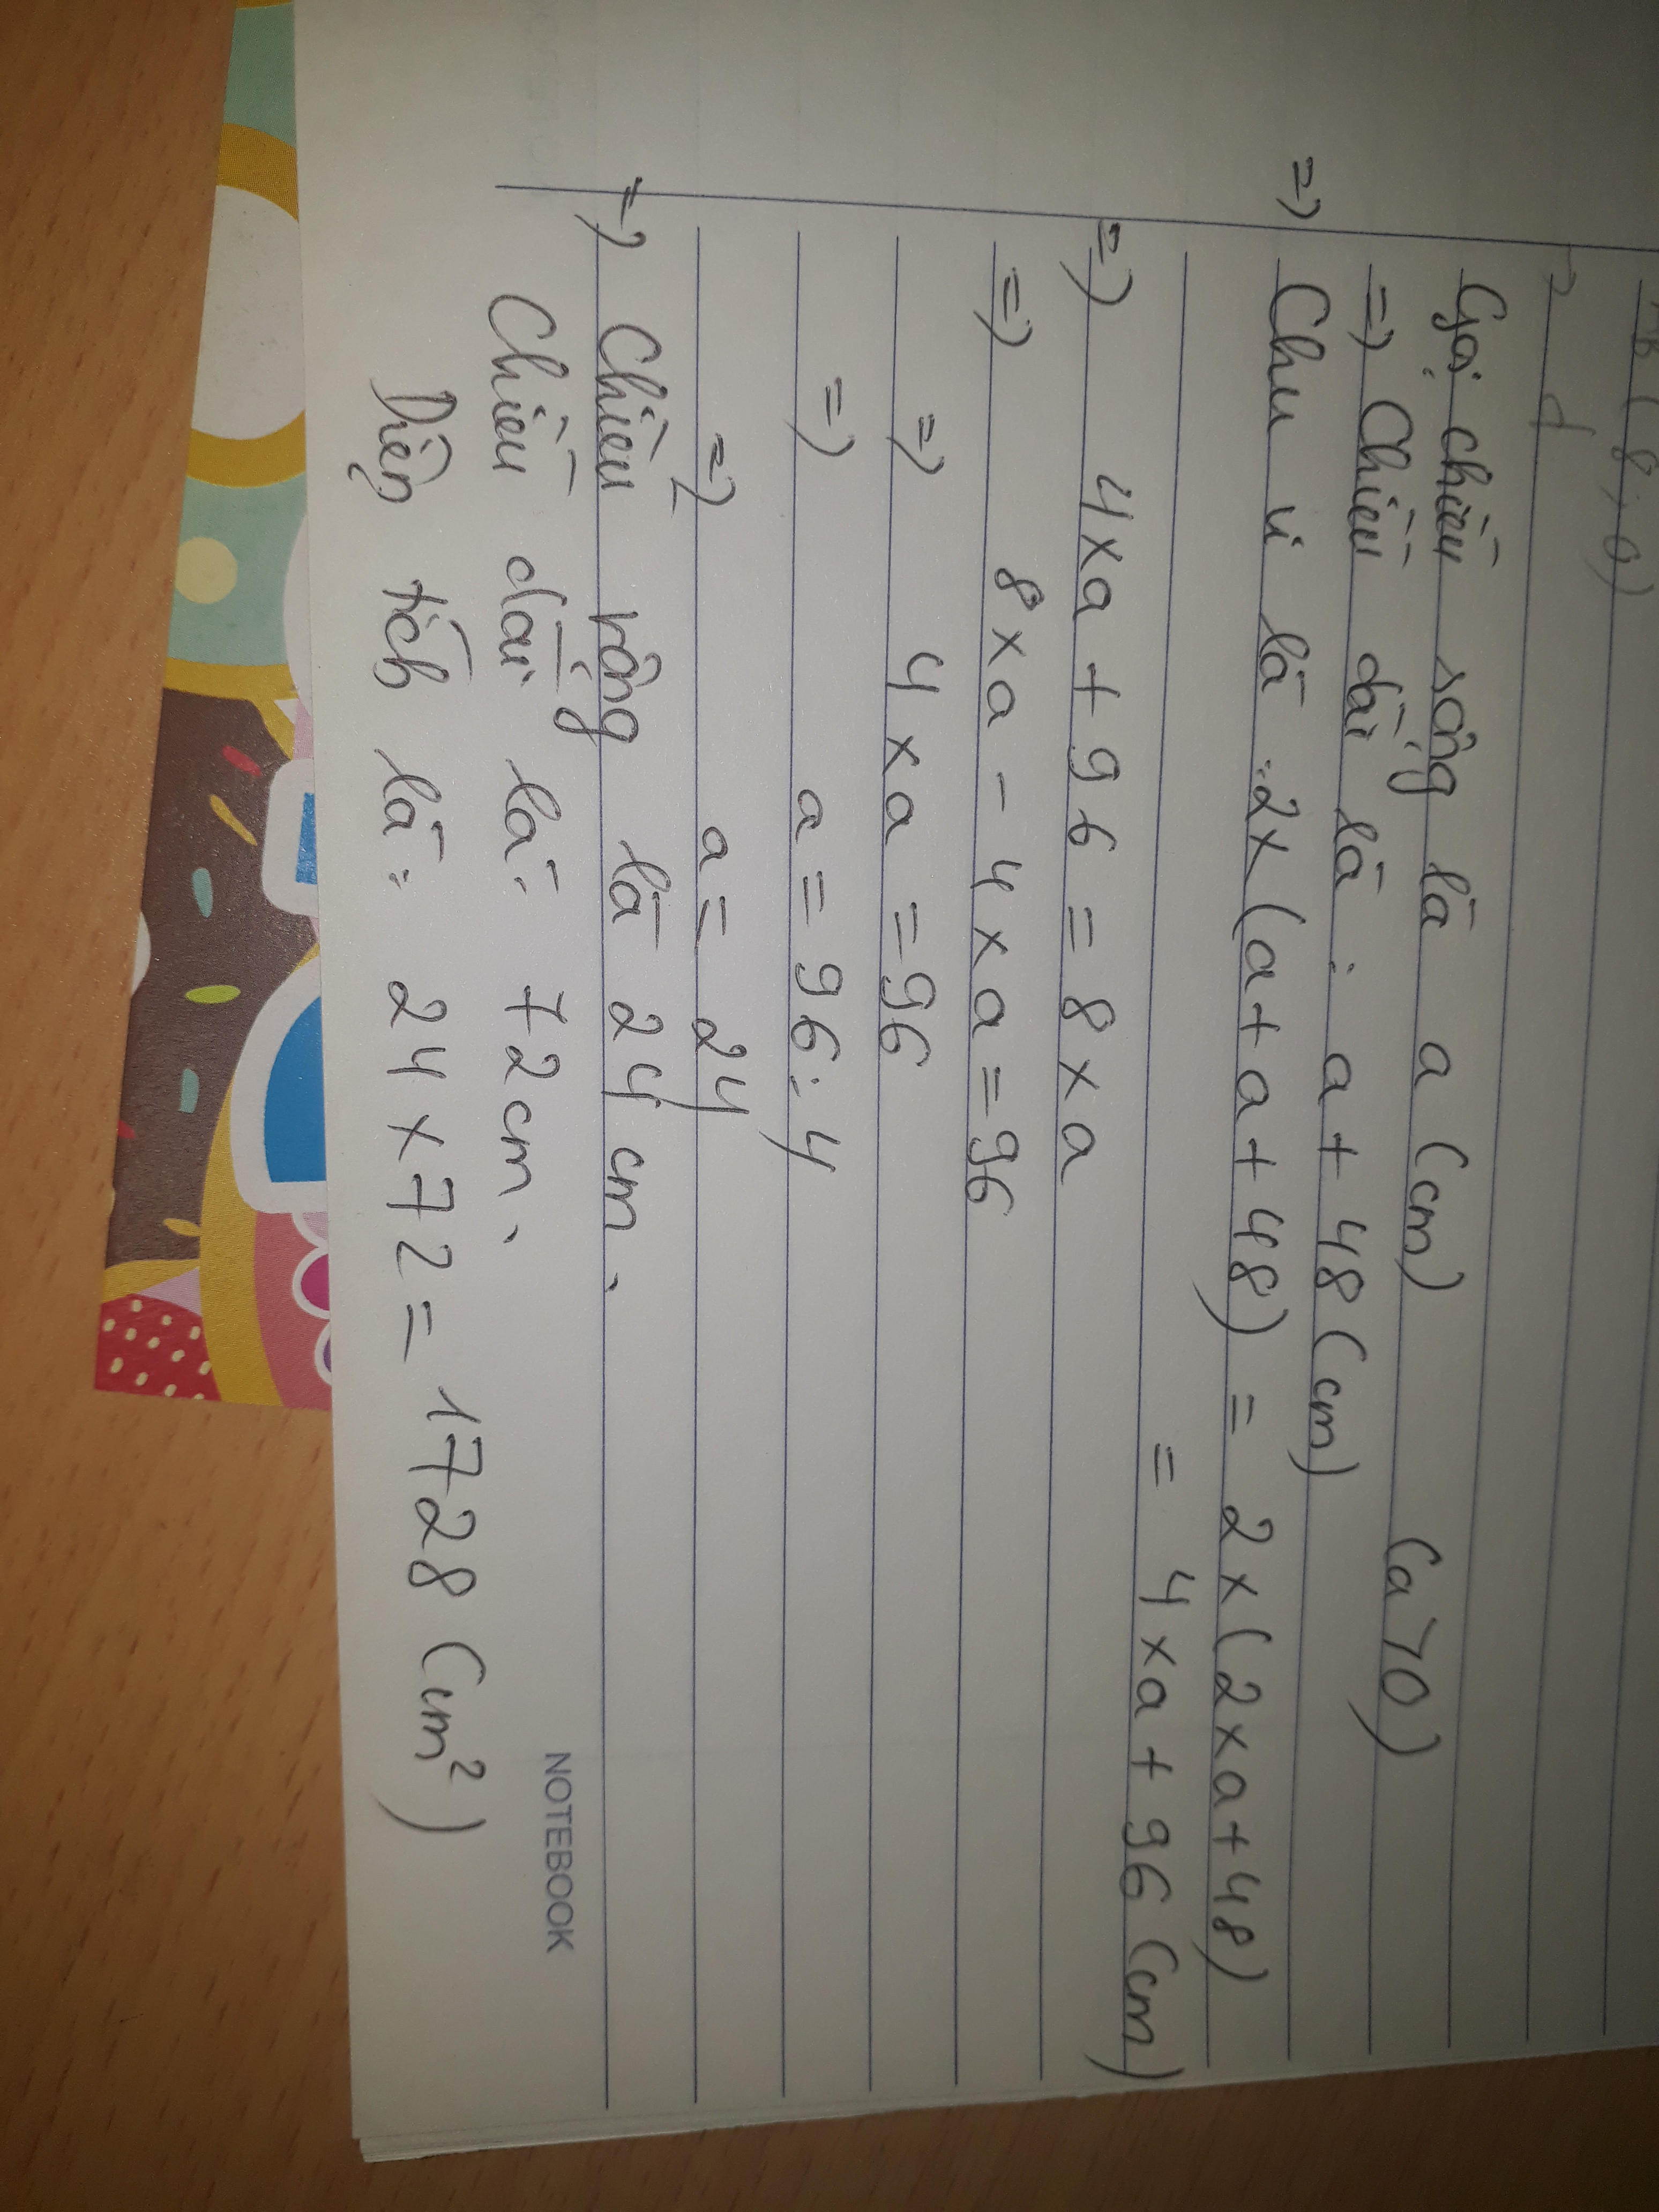 Gọi chiều rộng là a (cm) (a>0)
=> Chiều dài là : a + 48 (cm)
=> Chu vi là : 2x (a + a + 48) = 2 x (2 x a + 48)
= 4 x a + 96 (cm)
=> 4 x a + 96 = 8 x a
=> 8 x a - 4 x a = 96
=> 4 x a = 96
=> a = 96 : 4
=> a = 24
=> Chiều rộng là 24 cm.
Chiều dài là: 72 cm.
Diện tích là: 24 x 72 = 1728 (cm²)
NOTEBOOK